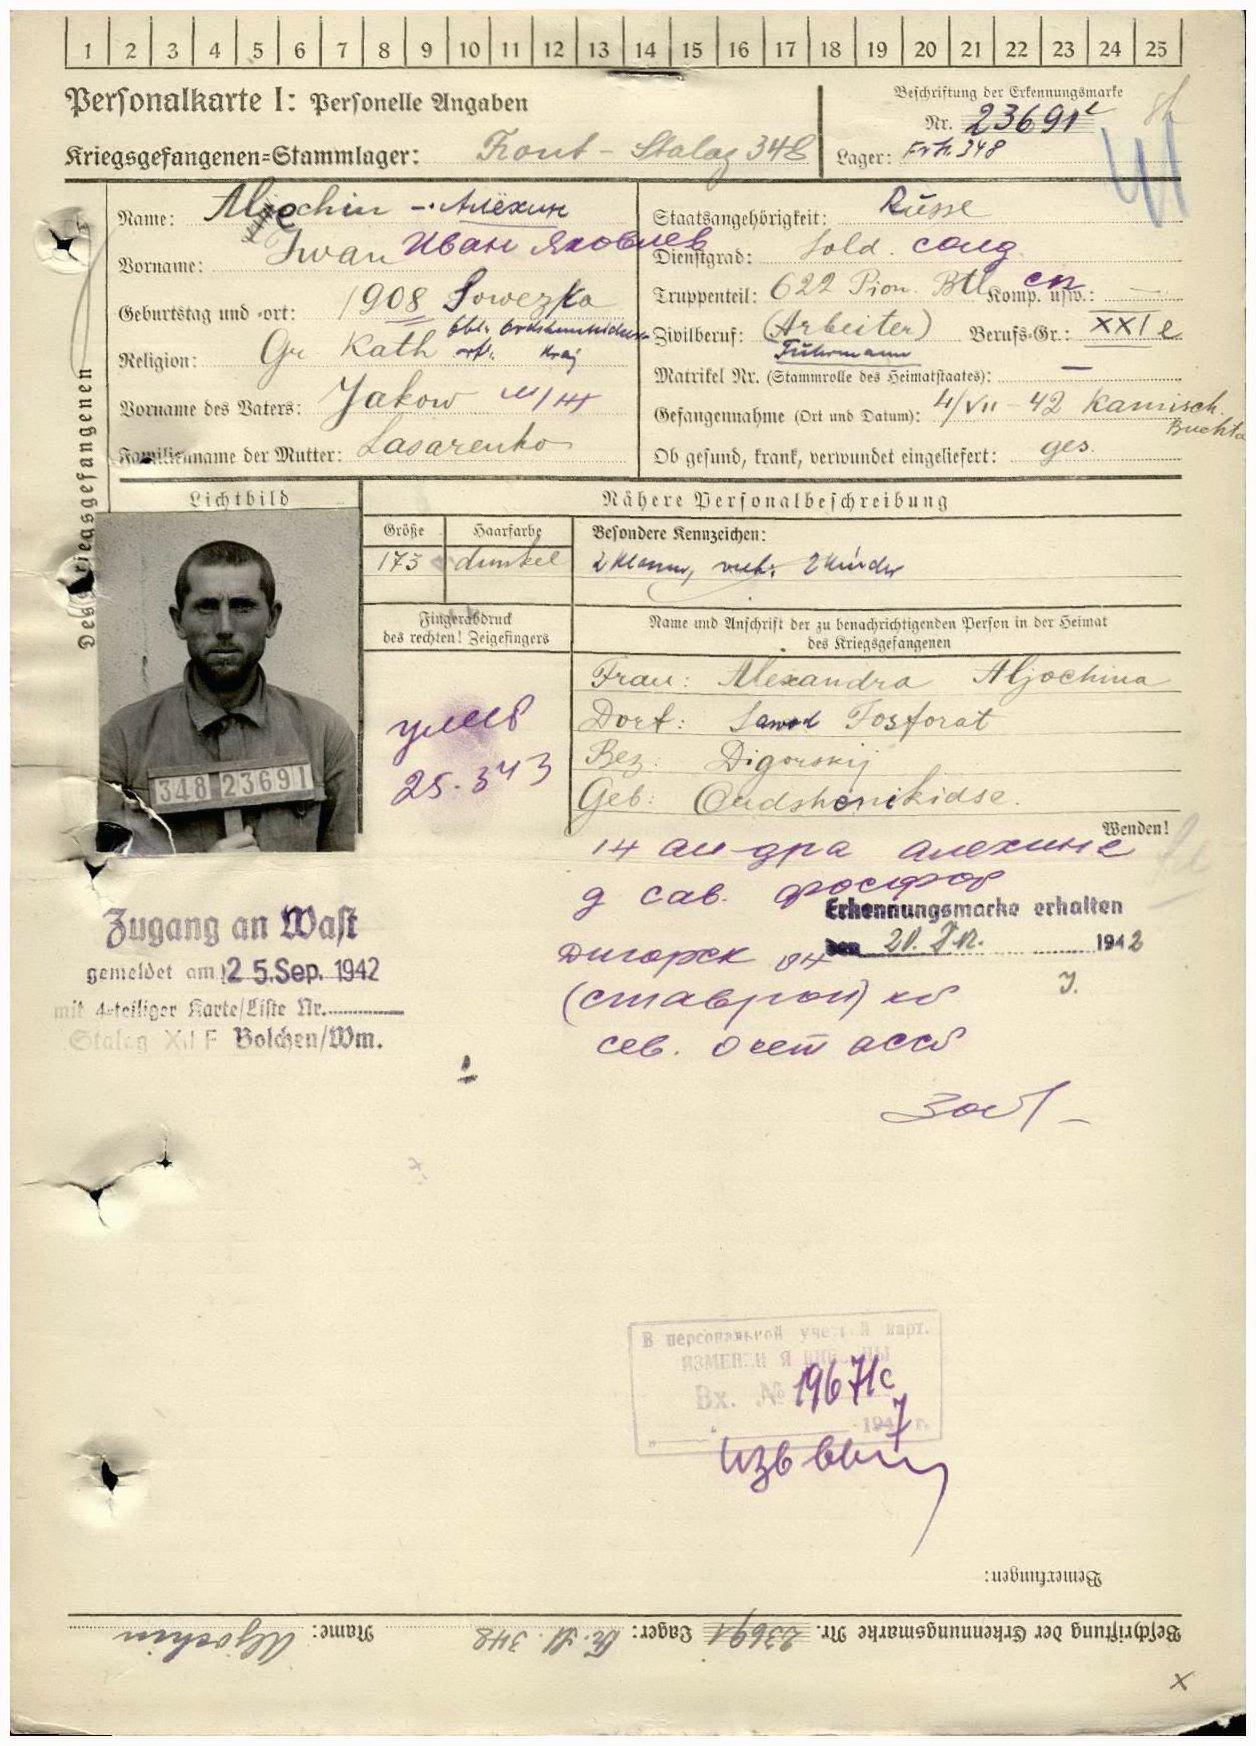 1 2 3 4 5 6 7 8 9 10 11 12 13 14 15 16 17 18 19 20 21 22 23 24 25
Personalkarte I: Personelle Angaben
Beschriftung der Erkennungsmarke
Nr. 23691
Kriegsgefangenen=Stammlager: Front - Stalag 348
Lager: Frst. 348
Des Kriegsgefangenen
Name: Aljochin - Алёхин
Vorname: Iwan Иван Яковлев
Geburtstag und -ort: 1908 Sowezka
Religion: Gr Kath
Vorname des Vaters: Jakow
Familienname der Mutter: Lasarenko
Staatsangehörigkeit: Russe
Dienstgrad: Sold. солд
Truppenteil: 622 Pion. Btl. сп Komp. usw.: —
Zivilberuf: (Arbeiter) Berufs=Gr.: XXI e
Fuhrmann
Matrikel Nr. (Stammrolle des Heimatstaates): —
Gefangennahme (Ort und Datum): 4/VII - 42 Kamisch.
Buchta
Ob gesund, krank, verwundet eingeliefert: ges.
Lichtbild
Nähere Personalbeschreibung
Größe Haarfarbe Besondere Kennzeichen:
173 dunkel 2 Klassen, verh. 2 Kinder
Fingerabdruck
des rechten! Zeigefingers
Name und Anschrift der zu benachrichtigenden Person in der Heimat
des Kriegsgefangenen
348 23691
умер
25.3 43
Frau: Alexandra Aljochina
Dorf: Sawod Fosforat
Bez: Digorskij
Geb: Ordshonikidse.
Wenden!
Алехине
д сав. фосфор
Erkennungsmarke erhalten
den 20. IX. 1942
Дигорск
(ставроп)
сев. осет асср
Zugang an Wast
gemeldet am 25. Sep. 1942
mit 4-teiliger Karte/Liste Nr.
Stalag XII F Bolchen/Wm.
В персональной учетной карт.
ИЗМЕНЕНИЯ ВНЕСЕНЫ
Вх. № 19671с
1947 г.
Bemerkungen:
Beschriftung der Erkennungsmarke Nr. 23691 Lager: Fr. St. 348 Name: Aljochin
x